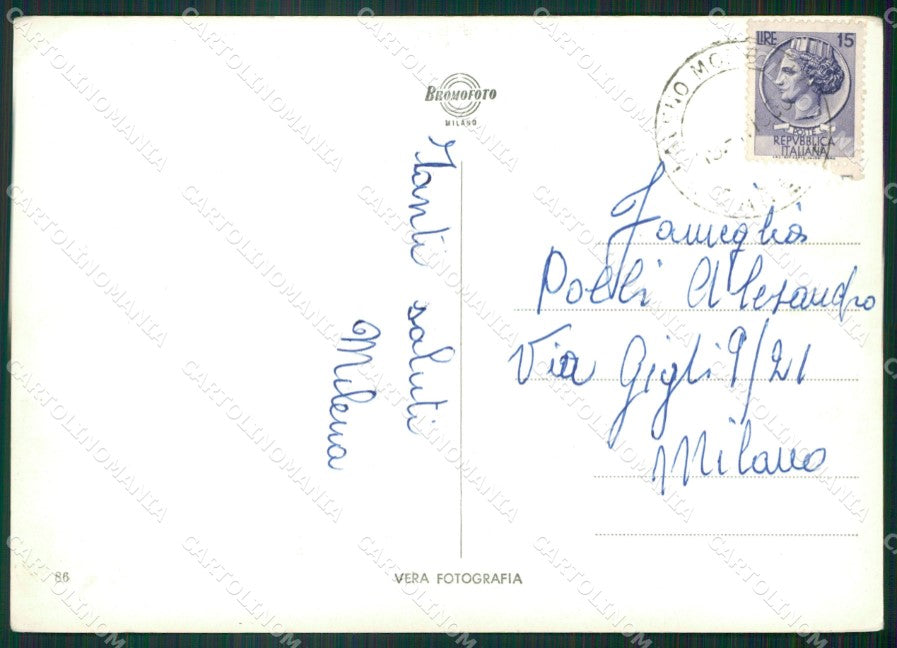 BROMOFOTO
MILANO
Tanti saluti
Milena
LIRE 15
POSTE
REPVBBLICA
ITALIANA
Famiglia
Polli Alesandro
Via Gigli 9/21
Milano
86
VERA FOTOGRAFIA
CARTOLINOMANIA